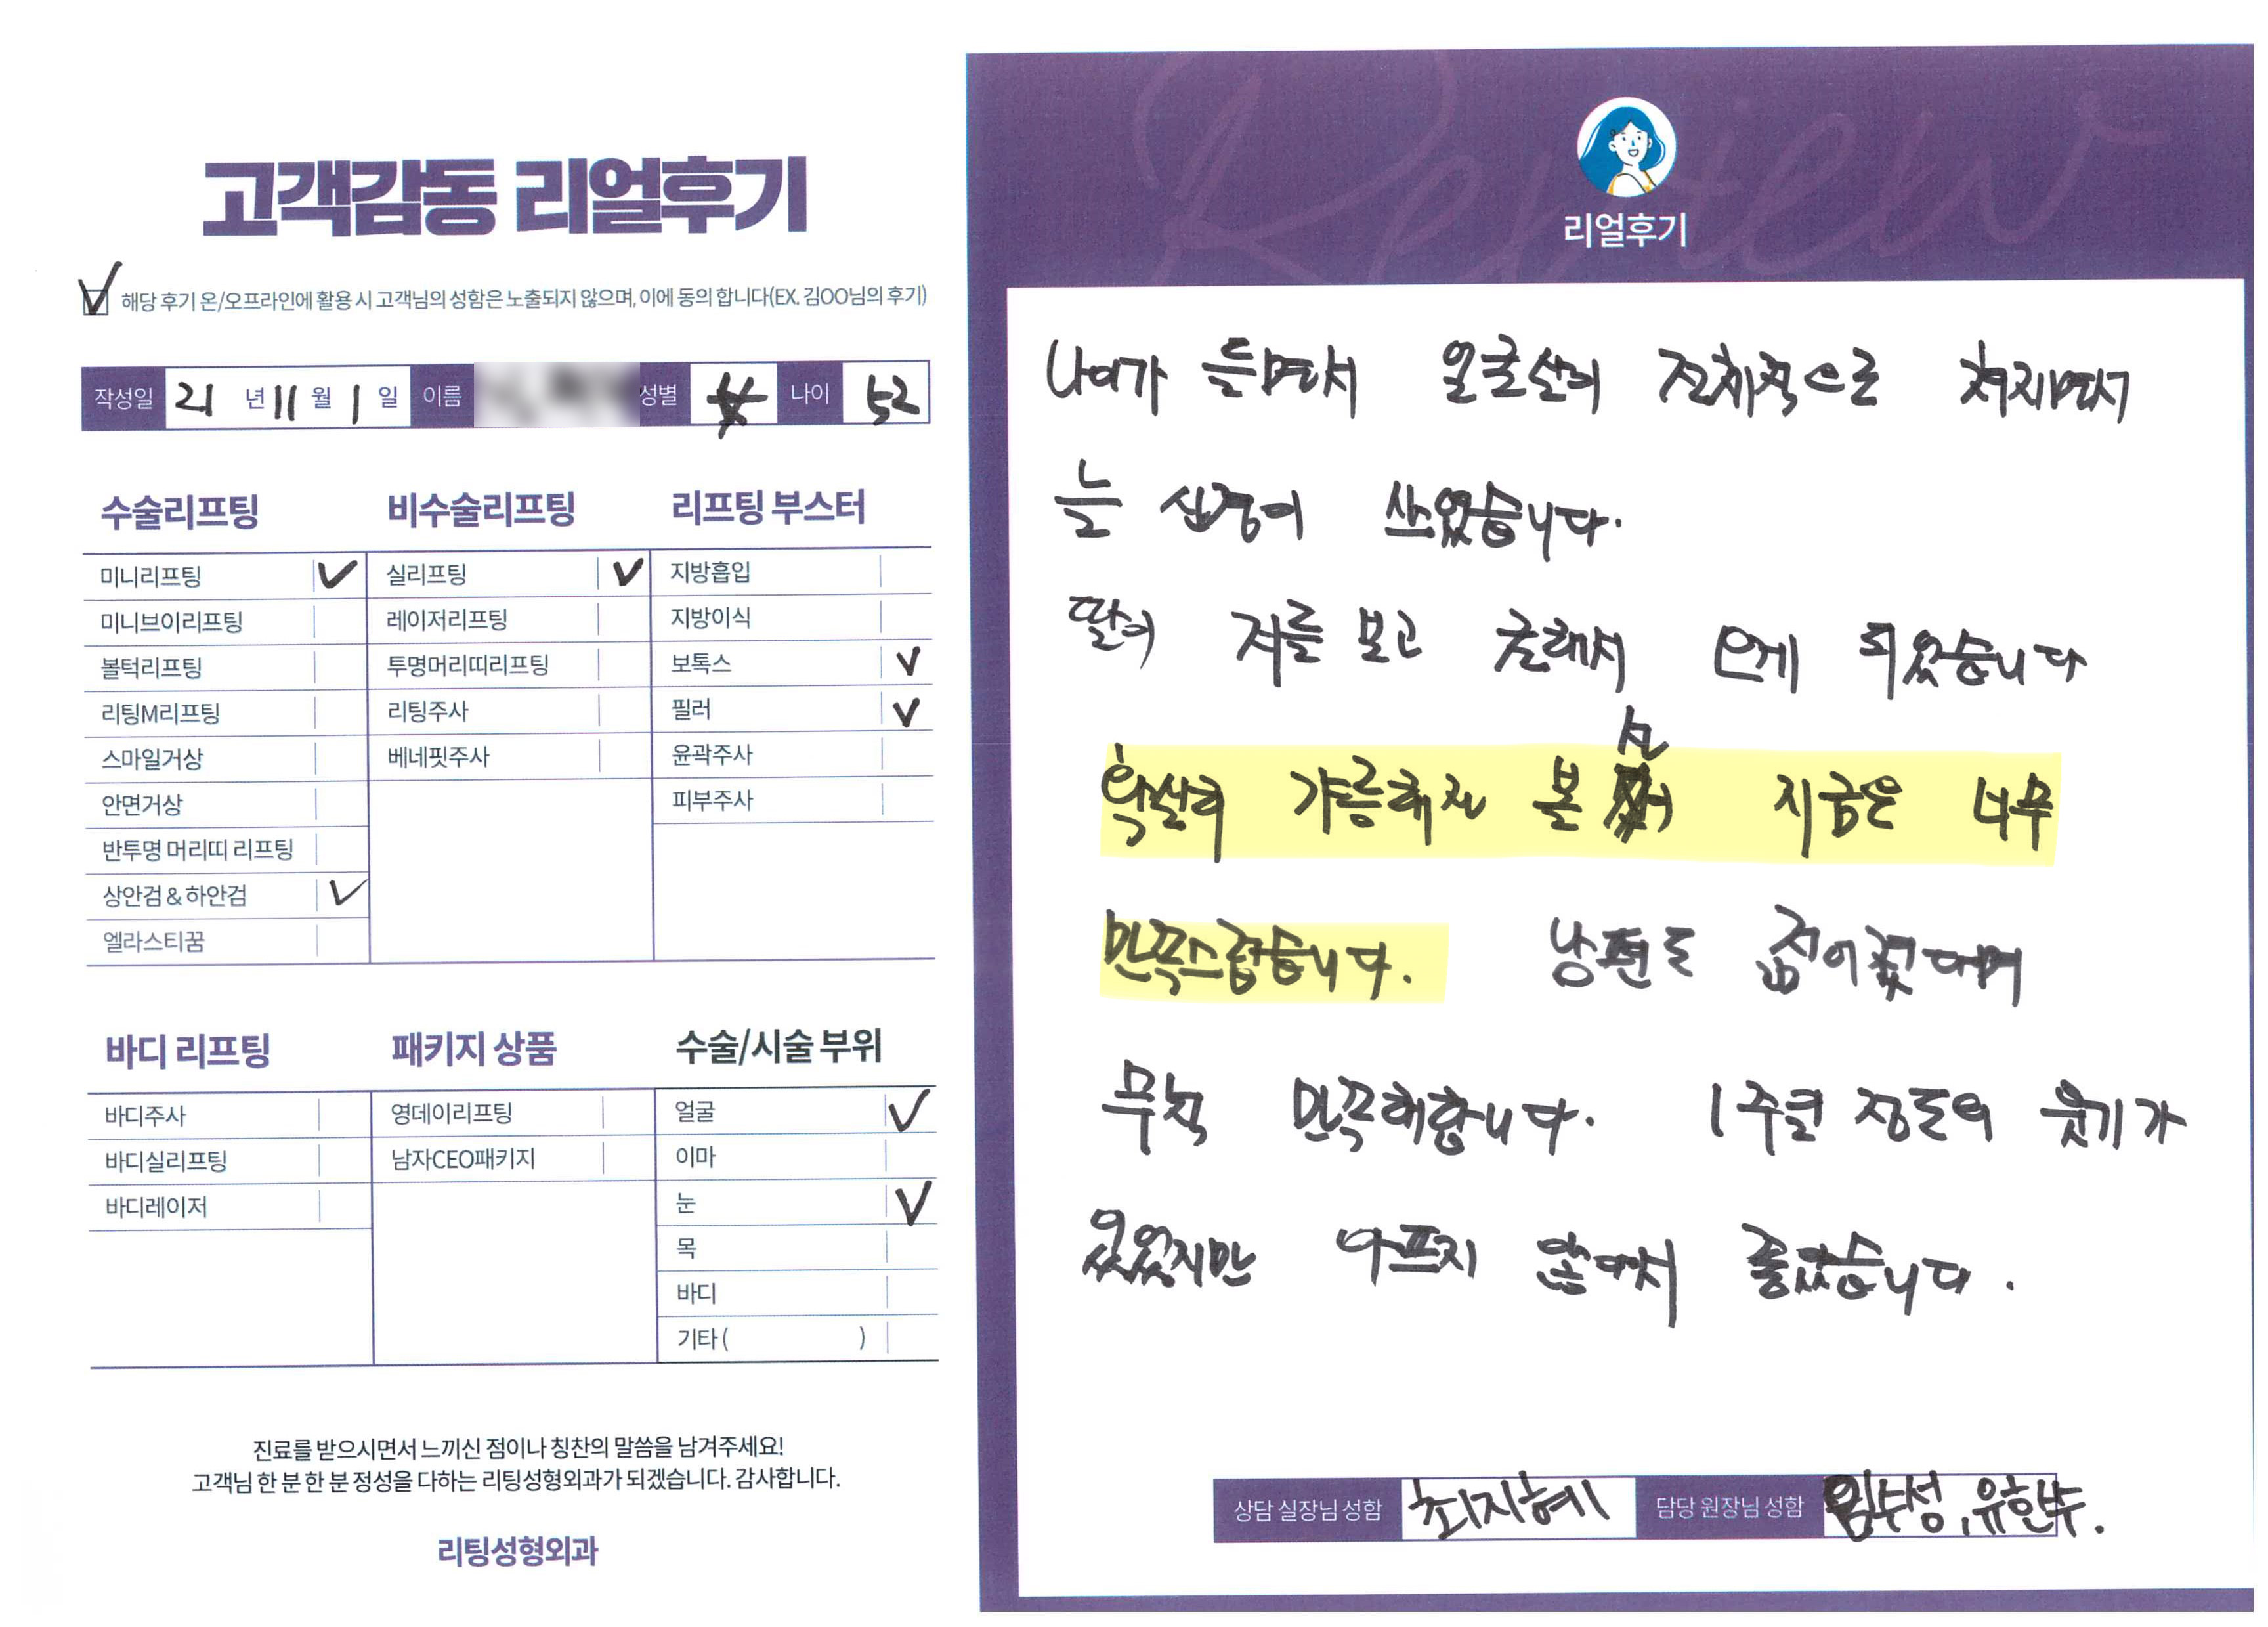 고객감동 리얼후기
해당 후기 온/오프라인에 활용 시 고객님의 성함은 노출되지 않으며, 이에 동의 합니다(EX. 김OO님의 후기)
작성일 21 년 11 월 1 일 이름 성별 女 나이 52
수술리프팅 비수술리프팅 리프팅 부스터
미니리프팅 실리프팅 지방흡입
미니브이리프팅 레이저리프팅 지방이식
볼턱리프팅 투명머리띠리프팅 보톡스
리팅M리프팅 리팅주사 필러
스마일거상 베네핏주사 윤곽주사
안면거상 피부주사
반투명 머리띠 리프팅
상안검 & 하안검
엘라스티꿈
바디 리프팅 패키지 상품 수술/시술 부위
바디주사 영데이리프팅 얼굴
바디실리프팅 남자CEO패키지 이마
바디레이저 눈
목
바디
기타 ( )
진료를 받으시면서 느끼신 점이나 칭찬의 말씀을 남겨주세요!
고객님 한 분 한 분 정성을 다하는 리팅성형외과가 되겠습니다. 감사합니다.
리팅성형외과
Review
리얼후기
나이가 들면서 얼굴살이 전체적으로 쳐지면서
늘 신경이 쓰였습니다.
딸이 저를 보고 권해서 오게 되었습니다
확실히 갸름해진 볼 지금은 너무
만족스럽습니다. 남편도 젊어졌다며
무척 만족해합니다. 1주일 정도의 붓기가
있었지만 아프지 않아서 좋았습니다.
상담 실장님 성함 최지혜 담당 원장님 성함 임수성, 유한수.